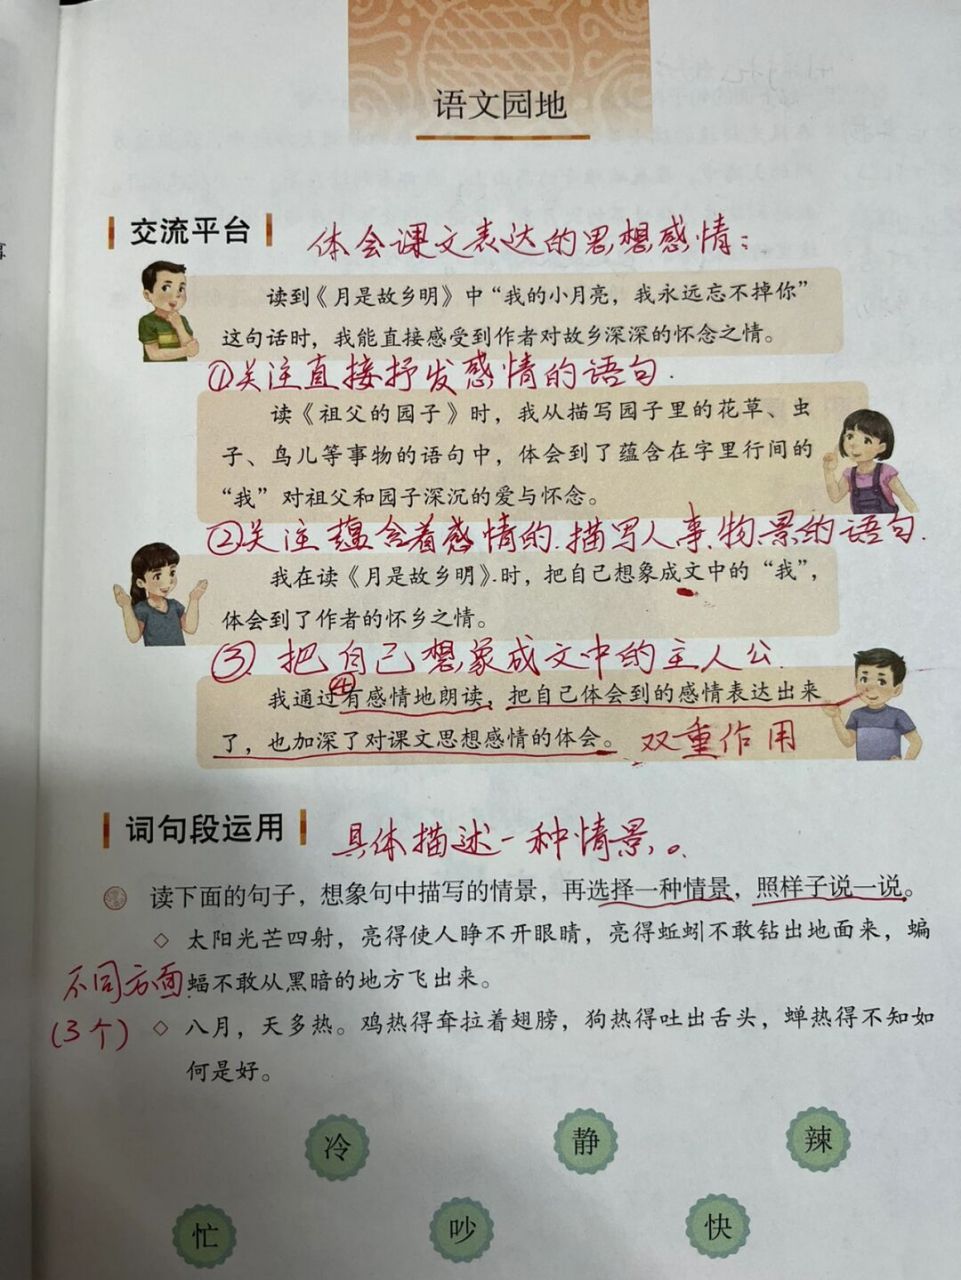 语文园地
交流平台 体会课文表达的思想感情：
读到《月是故乡明》中“我的小月亮，我永远忘不掉你”
这句话时，我能直接感受到作者对故乡深深的怀念之情。
①关注直接抒发感情的语句.
读《祖父的园子》时，我从描写园子里的花草、虫
子、鸟儿等事物的语句中，体会到了蕴含在字里行间的
“我”对祖父和园子深沉的爱与怀念。
②关注蕴含着感情的.描写人、事、物、景的语句.
我在读《月是故乡明》时，把自己想象成文中的“我”，
体会到了作者的怀乡之情。
③把自己想象成文中的主人公.
④
我通过有感情地朗读，把自己体会到的感情表达出来
了，也加深了对课文思想感情的体会。双重作用
词句段运用 具体描述一种情景。
读下面的句子，想象句中描写的情景，再选择一种情景，照样子说一说。
◇ 太阳光芒四射，亮得使人睁不开眼睛，亮得蚯蚓不敢钻出地面来，蝙
不同方面 蝠不敢从黑暗的地方飞出来。
(3个) ◇ 八月，天多热。鸡热得耷拉着翅膀，狗热得吐出舌头，蝉热得不知如
何是好。
冷 静 辣
忙 吵 快